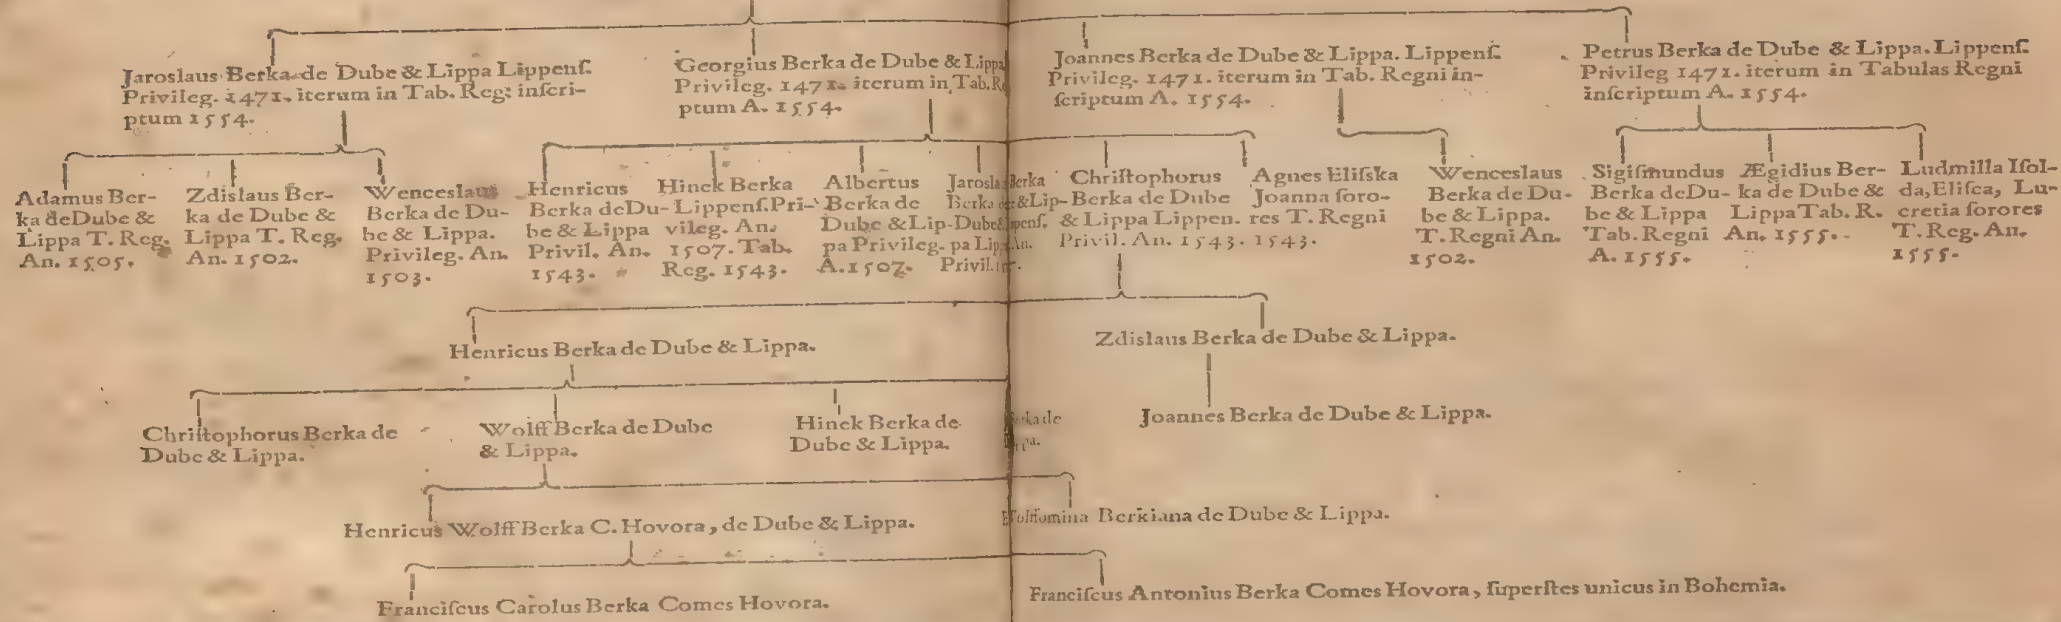 Jaroslaus Berka de Dube & Lippa Lippenſ.
Privileg. 1471. iterum in Tab. Reg: inſcri-
ptum 1554.
Georgius Berka de Dube & Lippa
Privileg. 1471. iterum in Tab.
ptum A. 1554.
Joannes Berka de Dube & Lippa. Lippenſ.
Privileg. 1471. iterum in Tab. Regni in-
ſcriptum A. 1554.
Petrus Berka de Dube & Lippa. Lippenſ.
Privileg 1471. iterum in Tabulas Regni
inſcriptum A. 1554.
Adamus Ber-
ka de Dube &
Lippa T. Reg.
An. 1505.
Zdislaus Ber-
ka de Dube &
Lippa T. Reg.
An. 1502.
Wenceslaus
Berka de Du-
be & Lippa.
Privileg. An.
1503.
Henricus
Berka de Du-
be & Lippa
Privil. An.
1543.
Hinek Berka
Lippenſ. Pri-
vileg. An.
1507. Tab.
Reg. 1543.
Albertus
Berka de
Dube & Lip-
pa Privileg.
A. 1507.
Jarosla Berka
Berka & Lip-
Dube
pa Lip An.
Privil.
Chriſtophorus
Berka de Dube
& Lippa Lippen.
Privil. An. 1543.
Agnes Eliſska
Joanna ſoro-
res T. Regni
1543.
Wenceslaus
Berka de Du-
be & Lippa.
T. Regni An.
1502.
Sigiſmundus
Berka de Du-
be & Lippa
Tab. Regni
A. 1555.
Ægidius Ber-
ka de Dube &
Lippa Tab. R.
An. 1555.
Ludmilla Iſol-
da, Eliſca, Lu-
cretia ſorores
T. Reg. An.
1555.
Henricus Berka de Dube & Lippa.
Zdislaus Berka de Dube & Lippa.
Chriſtophorus Berka de
Dube & Lippa.
Wolff Berka de Dube
& Lippa.
Hinek Berka de
Dube & Lippa.
Joannes Berka de Dube & Lippa.
Henricus Wolff Berka C. Hovora, de Dube & Lippa.
Berkiana de Dube & Lippa.
Franciſcus Carolus Berka Comes Hovora.
Franciſcus Antonius Berka Comes Hovora, ſuperſtes unicus in Bohemia.